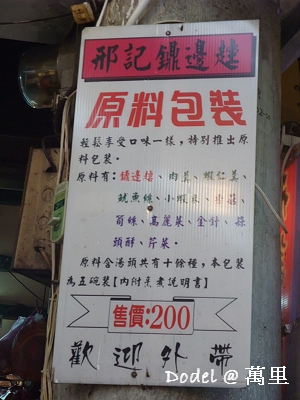 邢記鼎邊趖
原料包裝
輕鬆享受口味一樣,特別推出原
料包裝。
原料有:鼎邊趖、肉羹、蝦仁羹、
魷魚絲、小蝦米、香菇、
筍絲、高麗菜、金針、蒜
頭酥、芹菜。
原料含湯頭共有十余種,本包裝
為五碗裝【內附烹煮說明書】
售價:200
歡迎外帶
Dodel @ 萬里